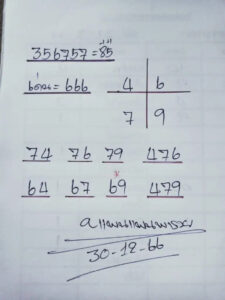 356757=85
=666
4 6
7 9
74 76 79 476
64 67 69 479
30-12-66